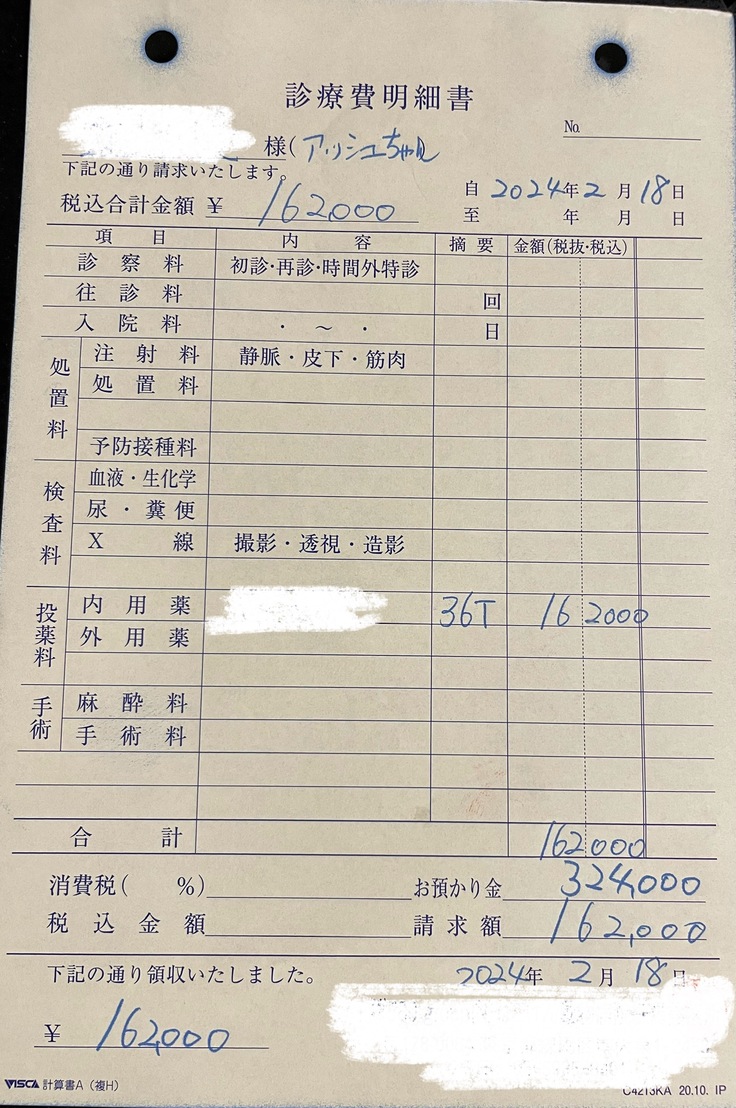 診療費明細書
No.
様(アッシュちゃん
下記の通り請求いたします。
税込合計金額 ¥ 162000
自 2024年 2月 18日
至 年 月 日
項目 内容 摘要 金額(税抜・税込)
診察料 初診・再診・時間外特診
往診料 回
入院料 ・ ～ ・ 日
処置料
注射料 静脈・皮下・筋肉
処置料
予防接種料
検査料
血液・生化学
尿・糞便
X線 撮影・透視・造影
投薬料
内用薬 36T 162000
外用薬
手術
麻酔料
手術料
合計 162000
消費税( %) お預かり金 324,000
税込金額 請求額 162,000
下記の通り領収いたしました。 2024年 2月 18日
¥ 162000
VISCA 計算書A（複H） C4213KA 20.10. IP